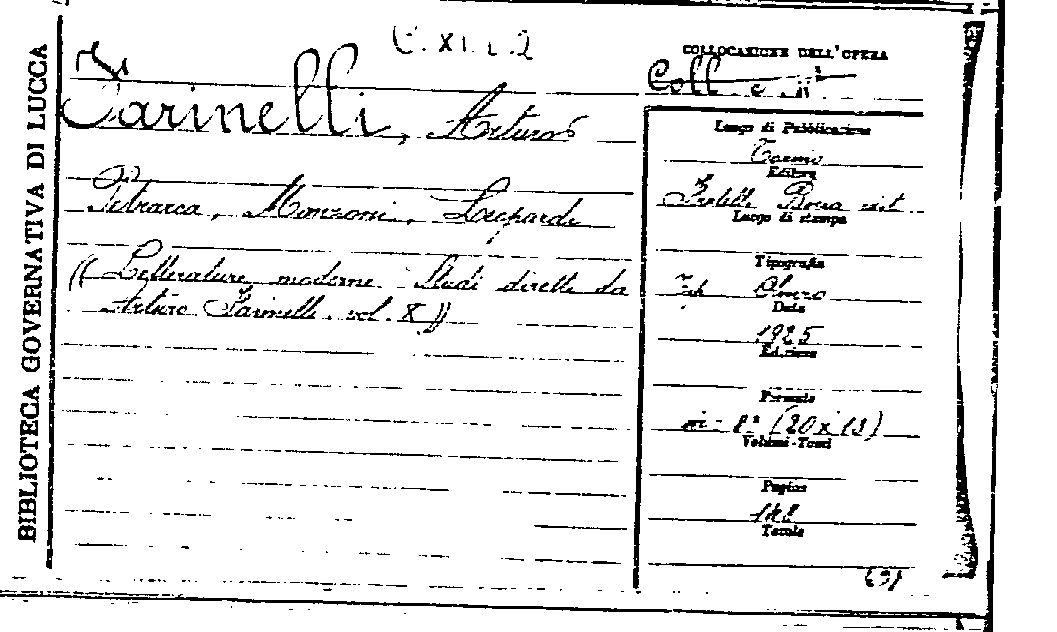 BIBLIOTECA GOVERNATIVA DI LUCCA
C. XI. i. 2
Farinelli, Arturo
Petrarca, Manzoni, Leopardi
(( Letterature moderne. Studi diretti da
Arturo Farinelli. vol. X ))
COLLOCAZIONE DELL'OPERA
Coll.
Luogo di Pubblicazione
Torino
Editore
Fratelli Bocca edit.
Luogo di stampa
Tipografia
Tip.
Data
1925
Edizione
Formato
in-8° (20 x 13)
Volumi-Tomi
Pagine
Tavole